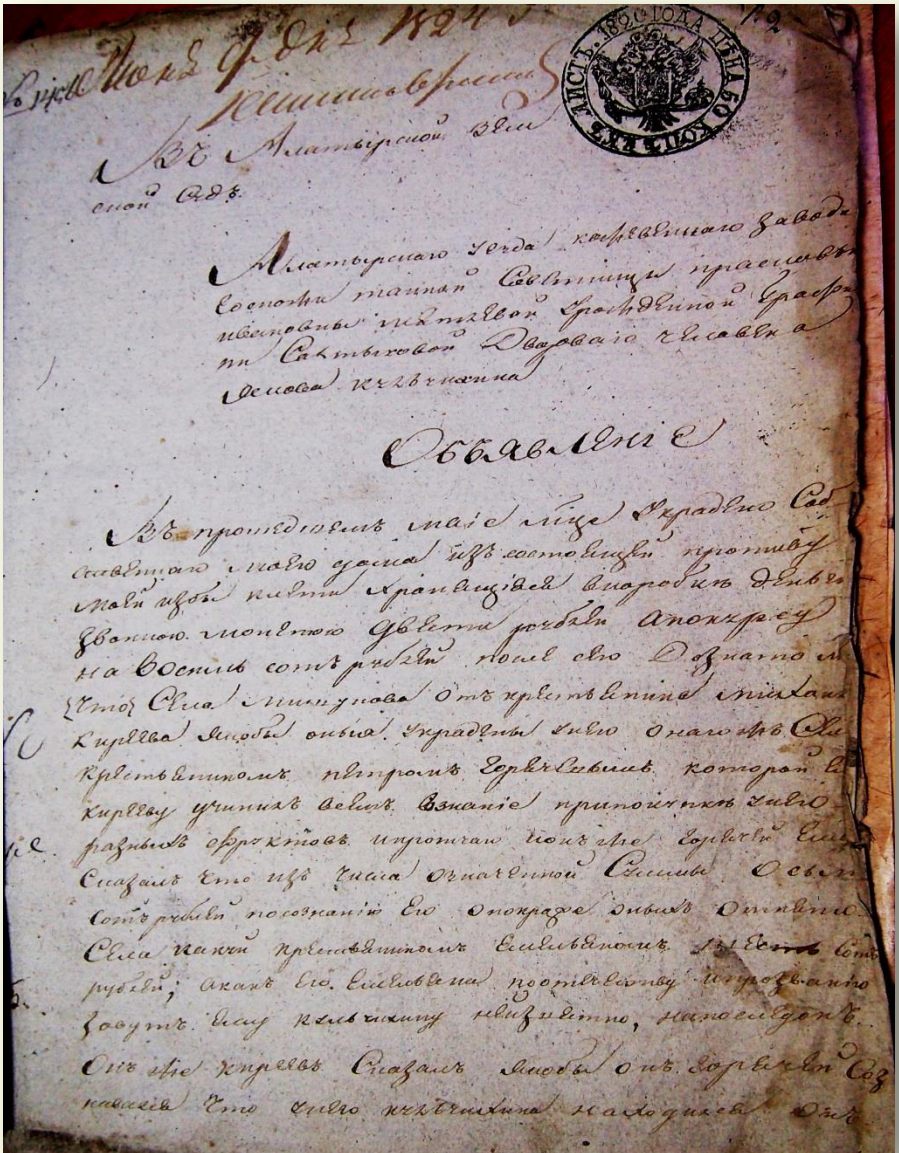 Июня 9 дня 1824
ЛИСТЪ. 1820 ГОДА ЦѢНА 50 КОПѢЕКЪ
Въ Алатырской Зем
ской Судъ.
Алатырскаго уезда завода
Госпожи тайной Советницы прасковьи
ивановны урожденной Графи
ни Салтыковой Дворового человека
Якова кулчихина
Объявленіе
Въ прошедшемъ маіе мце Украдено Соб
ственнаго моего дома изъ состоящей противу
моей избы клети хранящіеся вкоробке денегъ
звонкою монетою двести рублей апокурсу
на Восемь сотъ рублей после сего Дознато
что Села отъ крестьянина михаила
киреева якобы оныя украдены унего онагожъ Села
крестьяниномъ петромъ Горячевымъ которой
кирееву учинилъ всемъ взнаніе припокупке унего
разныхъ фруктовъ ипротчаго онже горячей Ему
Сказалъ что изъ числа означенной Суммы Осьми
сотъ рублей посознанію Его опокраже оныхъ
Села крестьяниномъ Емельяномъ шесть Сотъ
рублей; акакъ Его Емельяна поотчеству ипрозванію
зовутъ ему кулчихину неизвестно, напоследокъ
Онъ же киреевъ Сказалъ якобы онъ горячей Соз
навался что унего кулчихина находился